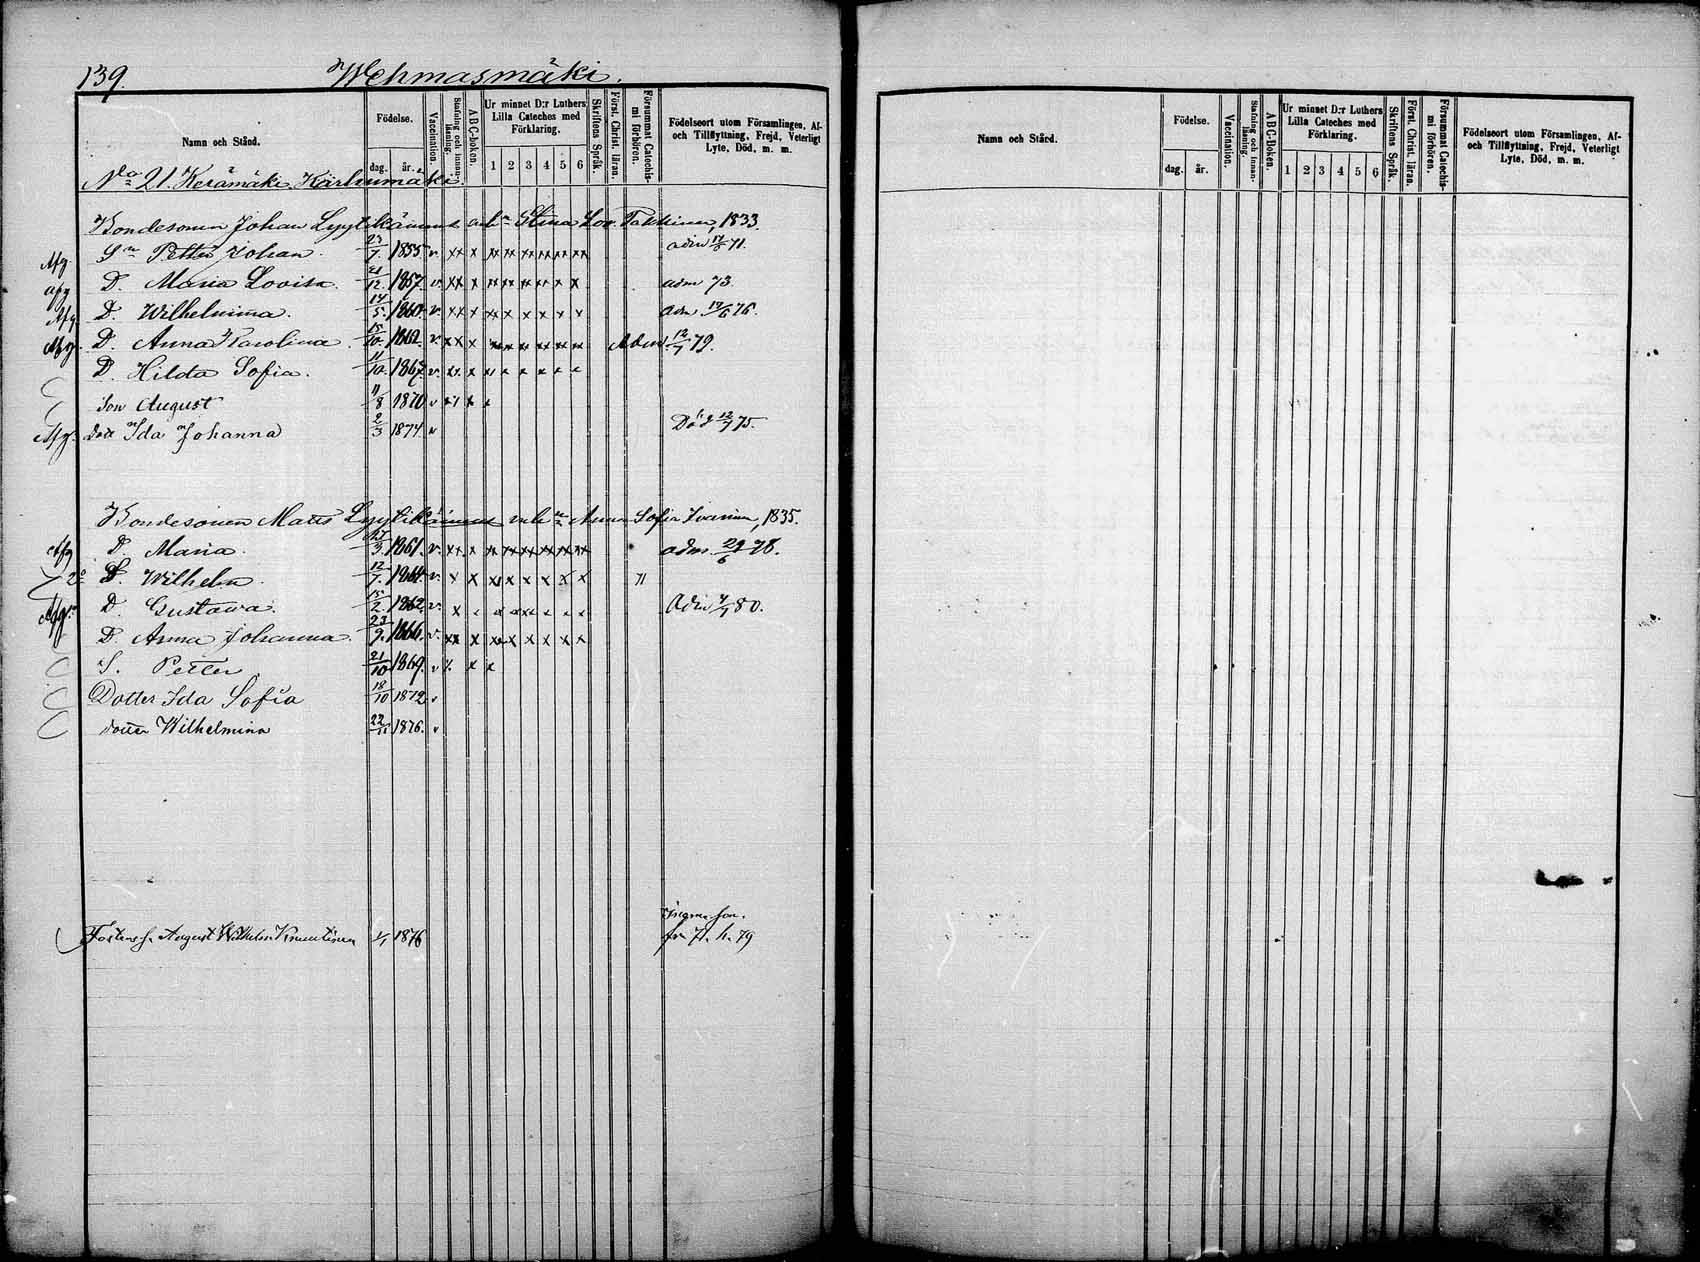 139. Wehmasmäki.
Namn och Stånd.
Födelse.
dag. år.
Vaccination.
Stafning och innanläsning.
A B C-boken.
Ur minnet D:r Luthers Lilla Cateches med Förklaring.
1 2 3 4 5 6
Skriftens Språk.
Först. Christ. läran.
Försummat Catechismi förhören.
Födelseort utom Församlingen, Af- och Tillflyttning, Frejd, Veterligt Lyte, Död, m. m.
No 21. Kerämäki Karhumäki.
Bondesonen Johan Lyytikäinens och Stina Lov. Takkinen, 1833.
Afg. Sn Petter Johan. 23/7. 1855. v. adm 17/6 71.
afg D. Maria Lovisa. 21/12. 1857. v. adm 73.
Afg. D. Wilhelmina. 14/5. 1860. v. adm 17/6 76.
Afg. D. Anna Karolina 15/10. 1862. v. Adm 12/7 79.
D. Hilda Sofia. 11/10. 1867. v.
Son August 11/8 1870 v
Afg. Dott Ida Johanna 2/3 1874. v Död 12/7 75.
Bondesonen Matts Lyytikäinens och Anna Sofia Ivarinen, 1835.
Afg D. Maria. 1861. v. adm. 29/6 78.
Wilhelm. 12/7. 1864. v. 71
Afg. D. Gustava. 15/2. 1862. v. Adm 4/7 80.
D. Anna Johanna. 23/9. 1866. v.
S. Petter 21/10 1869. v
Dotter Ida Sofia 18/10 1872 v
dotter Wilhelmina 22/11 1876. v
August Wilhelm Knuutinen 1/1 1876
fr 71. h. 79
Namn och Stånd.
Födelse.
dag. år.
Vaccination.
Stafning och innanläsning.
A B C-Boken.
Ur minnet D:r Luthers Lilla Cateches med Förklaring.
1 2 3 4 5 6
Skriftens Språk.
Först. Christ. läran.
Försummat Catechismi förhören.
Födelseort utom Församlingen, Af- och Tillflyttning, Frejd, Veterligt Lyte, Död, m. m.